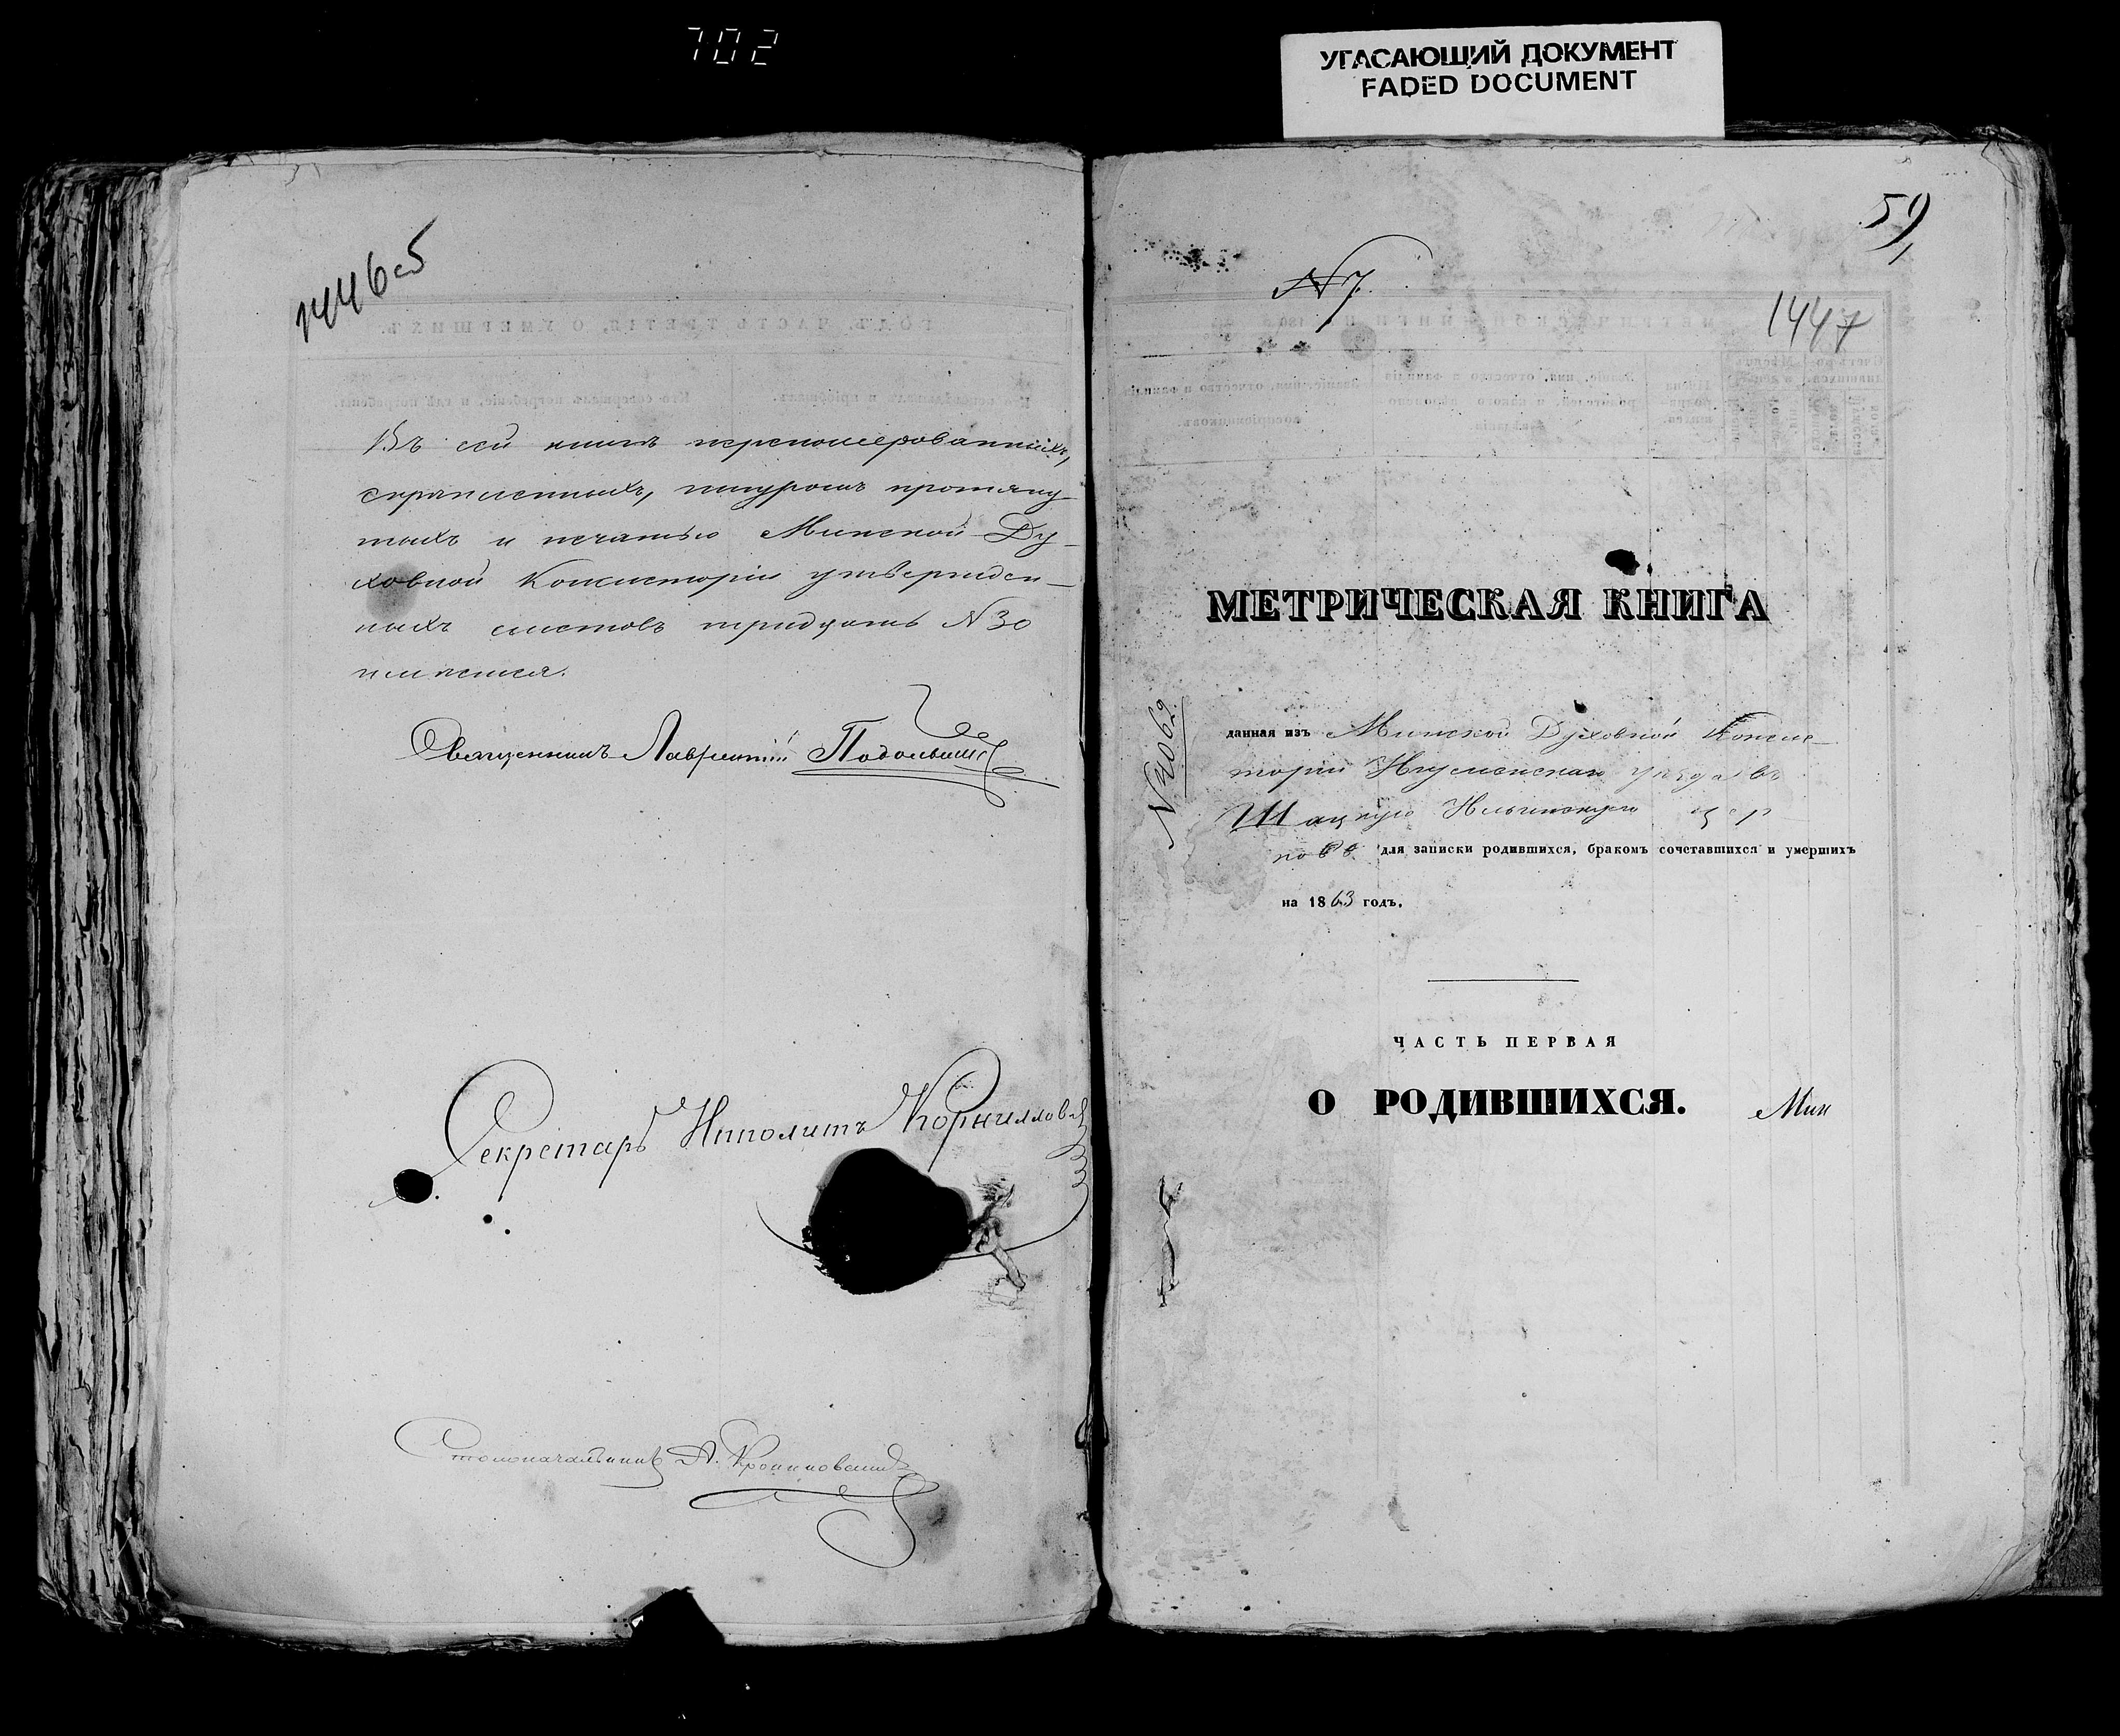 702
УГАСАЮЩИЙ ДОКУМЕНТ
FADED DOCUMENT
1446 об
Въ сей книгѣ перенумерованныхъ,
скрѣпленныхъ, шнуромъ протяну-
тыхъ и печатью Минской Ду-
ховной Консисторіи утвержден-
ныхъ листовъ тридцать №30
Священникъ Лаврентій
Секретарь Ипполитъ Корниллов
Столоначальникъ А.
59
№7
1447
МЕТРИЧЕСКАЯ КНИГА
№4062
данная изъ Минской Духовной Консис-
торіи Игуменскаго уѣзда въ
Шацкую Ильинскую цер
ковь для записки родившихся, бракомъ сочетавшихся и умершихъ
на 1863 годъ.
ЧАСТЬ ПЕРВАЯ
О РОДИВШИХСЯ.
Мин